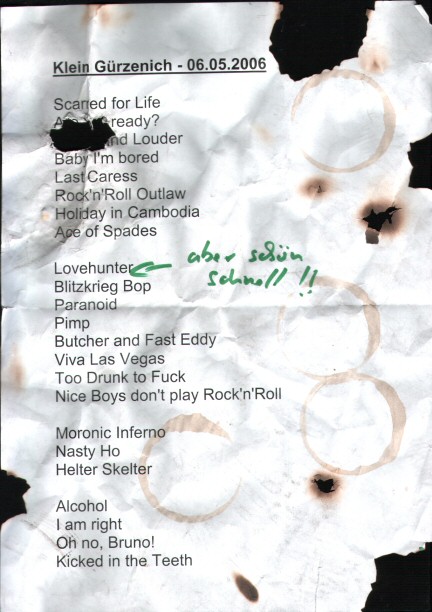 Klein Gürzenich - 06.05.2006
Scarred for Life
ready?
nd Louder
Baby I'm bored
Last Caress
Rock'n'Roll Outlaw
Holiday in Cambodia
Ace of Spades
Lovehunter
aber schön
schnell !!
Blitzkrieg Bop
Paranoid
Pimp
Butcher and Fast Eddy
Viva Las Vegas
Too Drunk to Fuck
Nice Boys don't play Rock'n'Roll
Moronic Inferno
Nasty Ho
Helter Skelter
Alcohol
I am right
Oh no, Bruno!
Kicked in the Teeth